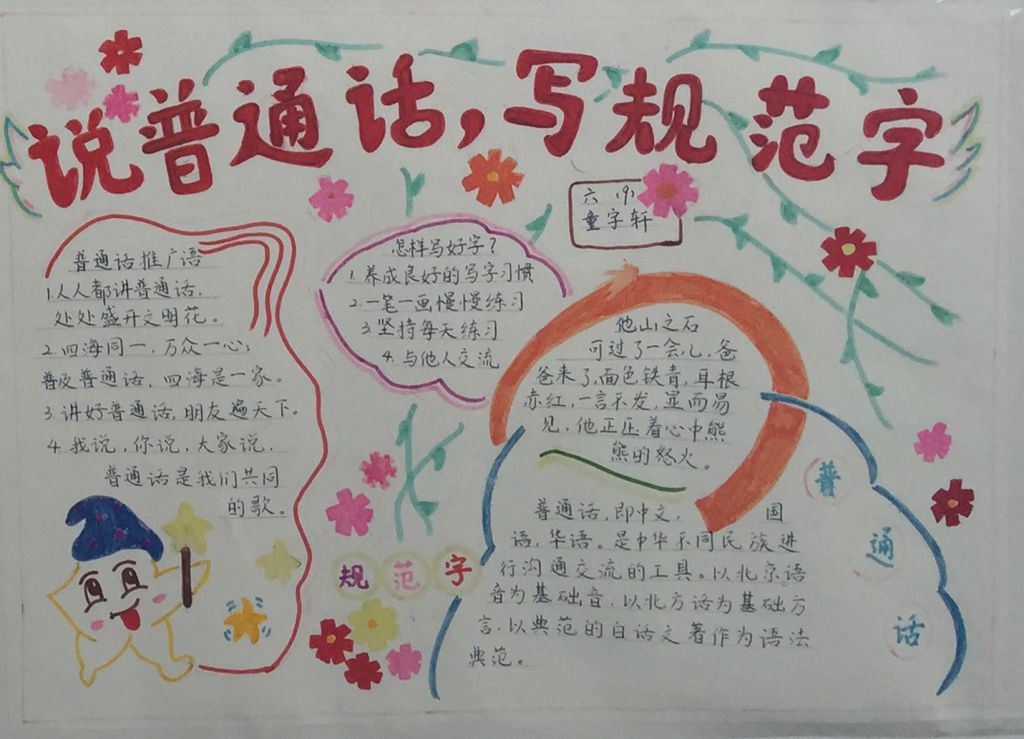 说普通话，写规范字
六（9）
童字轩
普通话推广语
1.人人都讲普通话，
处处盛开文明花。
2.四海同一，万众一心；
普及普通话，四海是一家。
3.讲好普通话，朋友遍天下。
4.我说，你说，大家说，
普通话是我们共同
的歌。
怎样写好字？
1.养成良好的写字习惯
2.一笔一画慢慢练习
3.坚持每天练习
4.与他人交流
他山之石
可过了一会儿，爸
爸来了，面色铁青，耳根
赤红，一言不发，显而易
见，他正压着心中熊
熊的怒火。
规范字
普通话
普通话，即中文， 国
语，华语。是中华不同民族进
行沟通交流的工具。以北京语
音为基础音，以北方话为基础方
言，以典范的白话文著作为语法
典范。